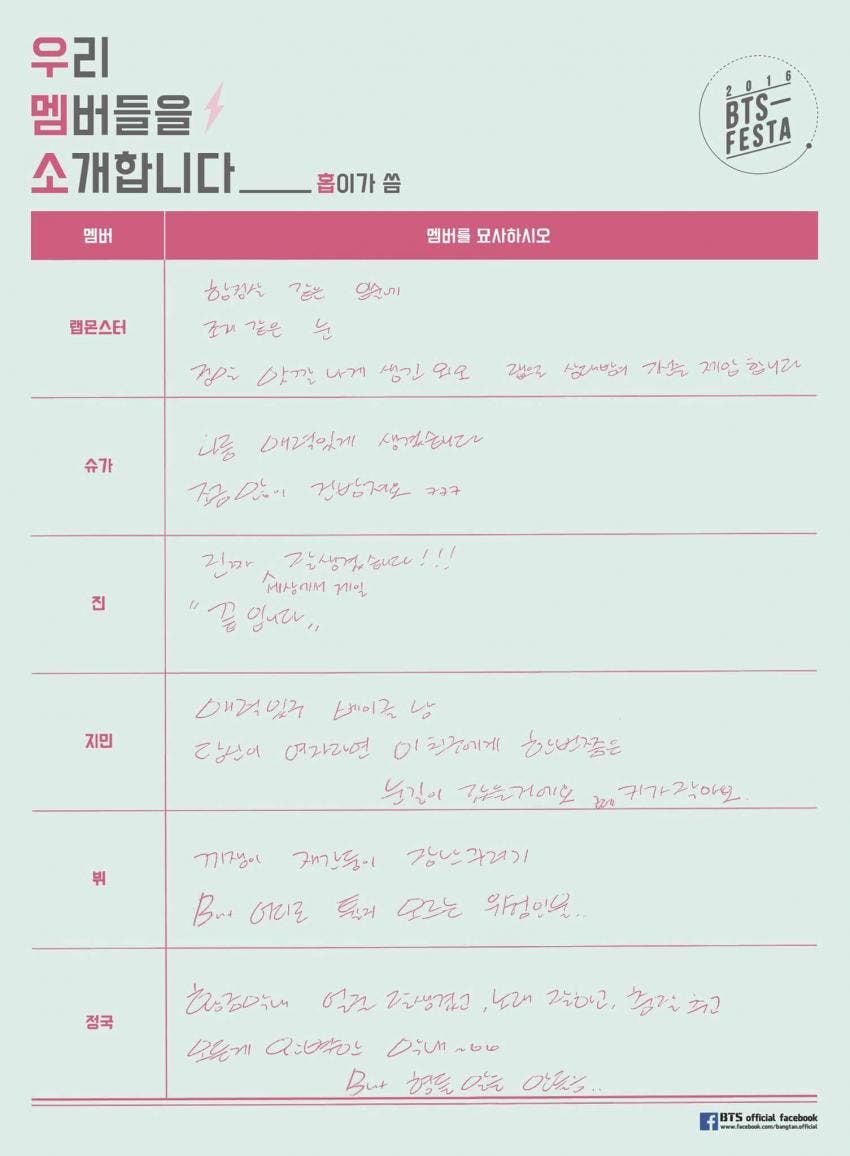 우리
멤버들을
소개합니다 홉이가 씀
2016
BTS-
FESTA
멤버
멤버를 묘사하시오
랩몬스터
같은 입술에
조개 같은 눈
생긴 외모 랩으로 상대방의 가슴을 제압합니다
슈가
나름 매력있게 생겼습니다
조금 많이 건방져요 ㅋㅋㅋ
진
진짜 잘생겼습니다!!!
세상에서 제일
"끝입니다"
지민
매력있구 베이글 남
당신이 여자라면 이 친구에게 한번쯤은
눈길이 갔을거에요 근데 키가 작아요.
뷔
끼쟁이 재간둥이 장난꾸러기
But 어디로 튈지 모르는 위험인물..
정국
황금막내 얼굴 잘생겼고, 노래 잘하고, 춤 잘 추고
모든게 완벽한 막내~
But 형들 말을 안들음..
BTS official facebook
www.facebook.com/bangtan.official